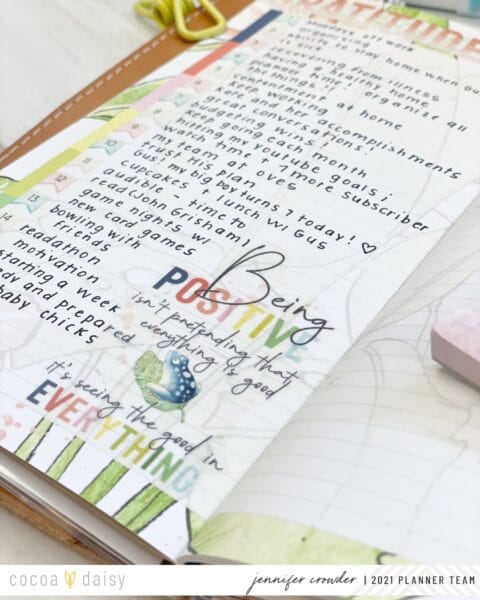 RATITUDE
organizing
ability to stay home when Gu
is sick
recovering from illness
having a healthy home
organize all
the things!!
contentment at home
working
and her accomplishments
great conversations!
budgeting wins!
keep going each month
hitting my youtube goals;
watch time & more subscriber
my team at OVES
trust His plan
Gus: my big boy turns 7 today! ♡
cupcakes & lunch w/ Gus
audible - time to
read (John Grisham)
game nights w/
new card games
bowling with
friends
readathon
motivation
starting a week
and prepared
baby chicks
9
10
11
12
13
14
Being
POSITIVE
isn't pretending that
everything is good
it's seeing the good in
EVERYTHING
cocoa daisy
jennifer crowder | 2021 PLANNER TEAM